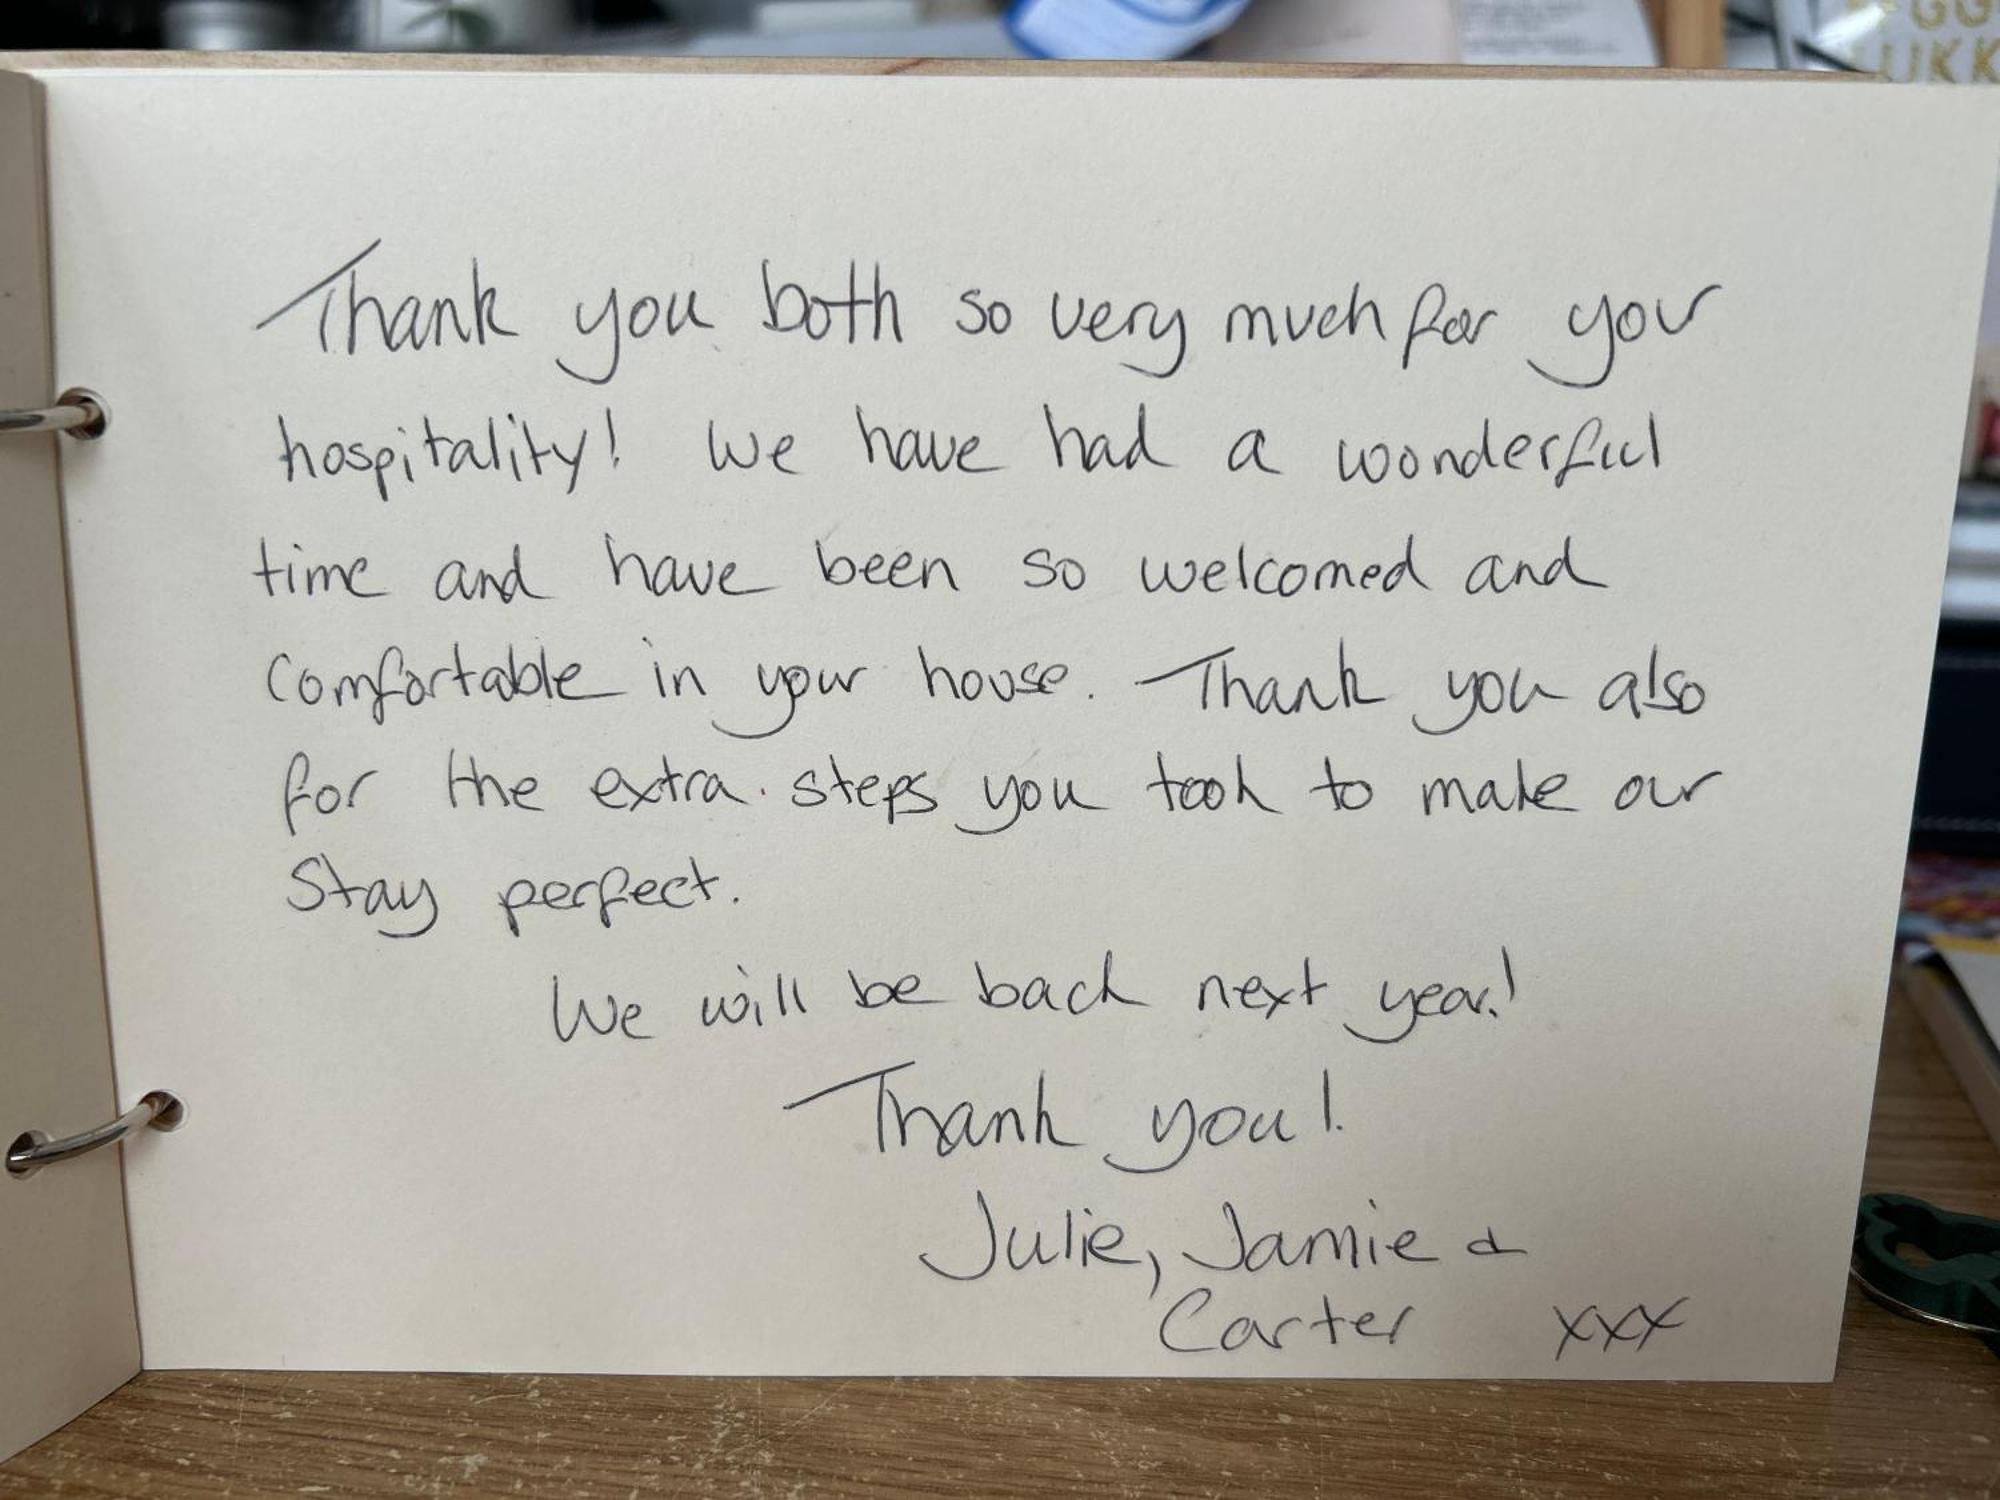 Thank you both so very much for your
hospitality! We have had a wonderful
time and have been so welcomed and
comfortable in your house. Thank you also
for the extra steps you took to make our
stay perfect.
We will be back next year!
Thank you!
Julie, Jamie &
Carter xxx